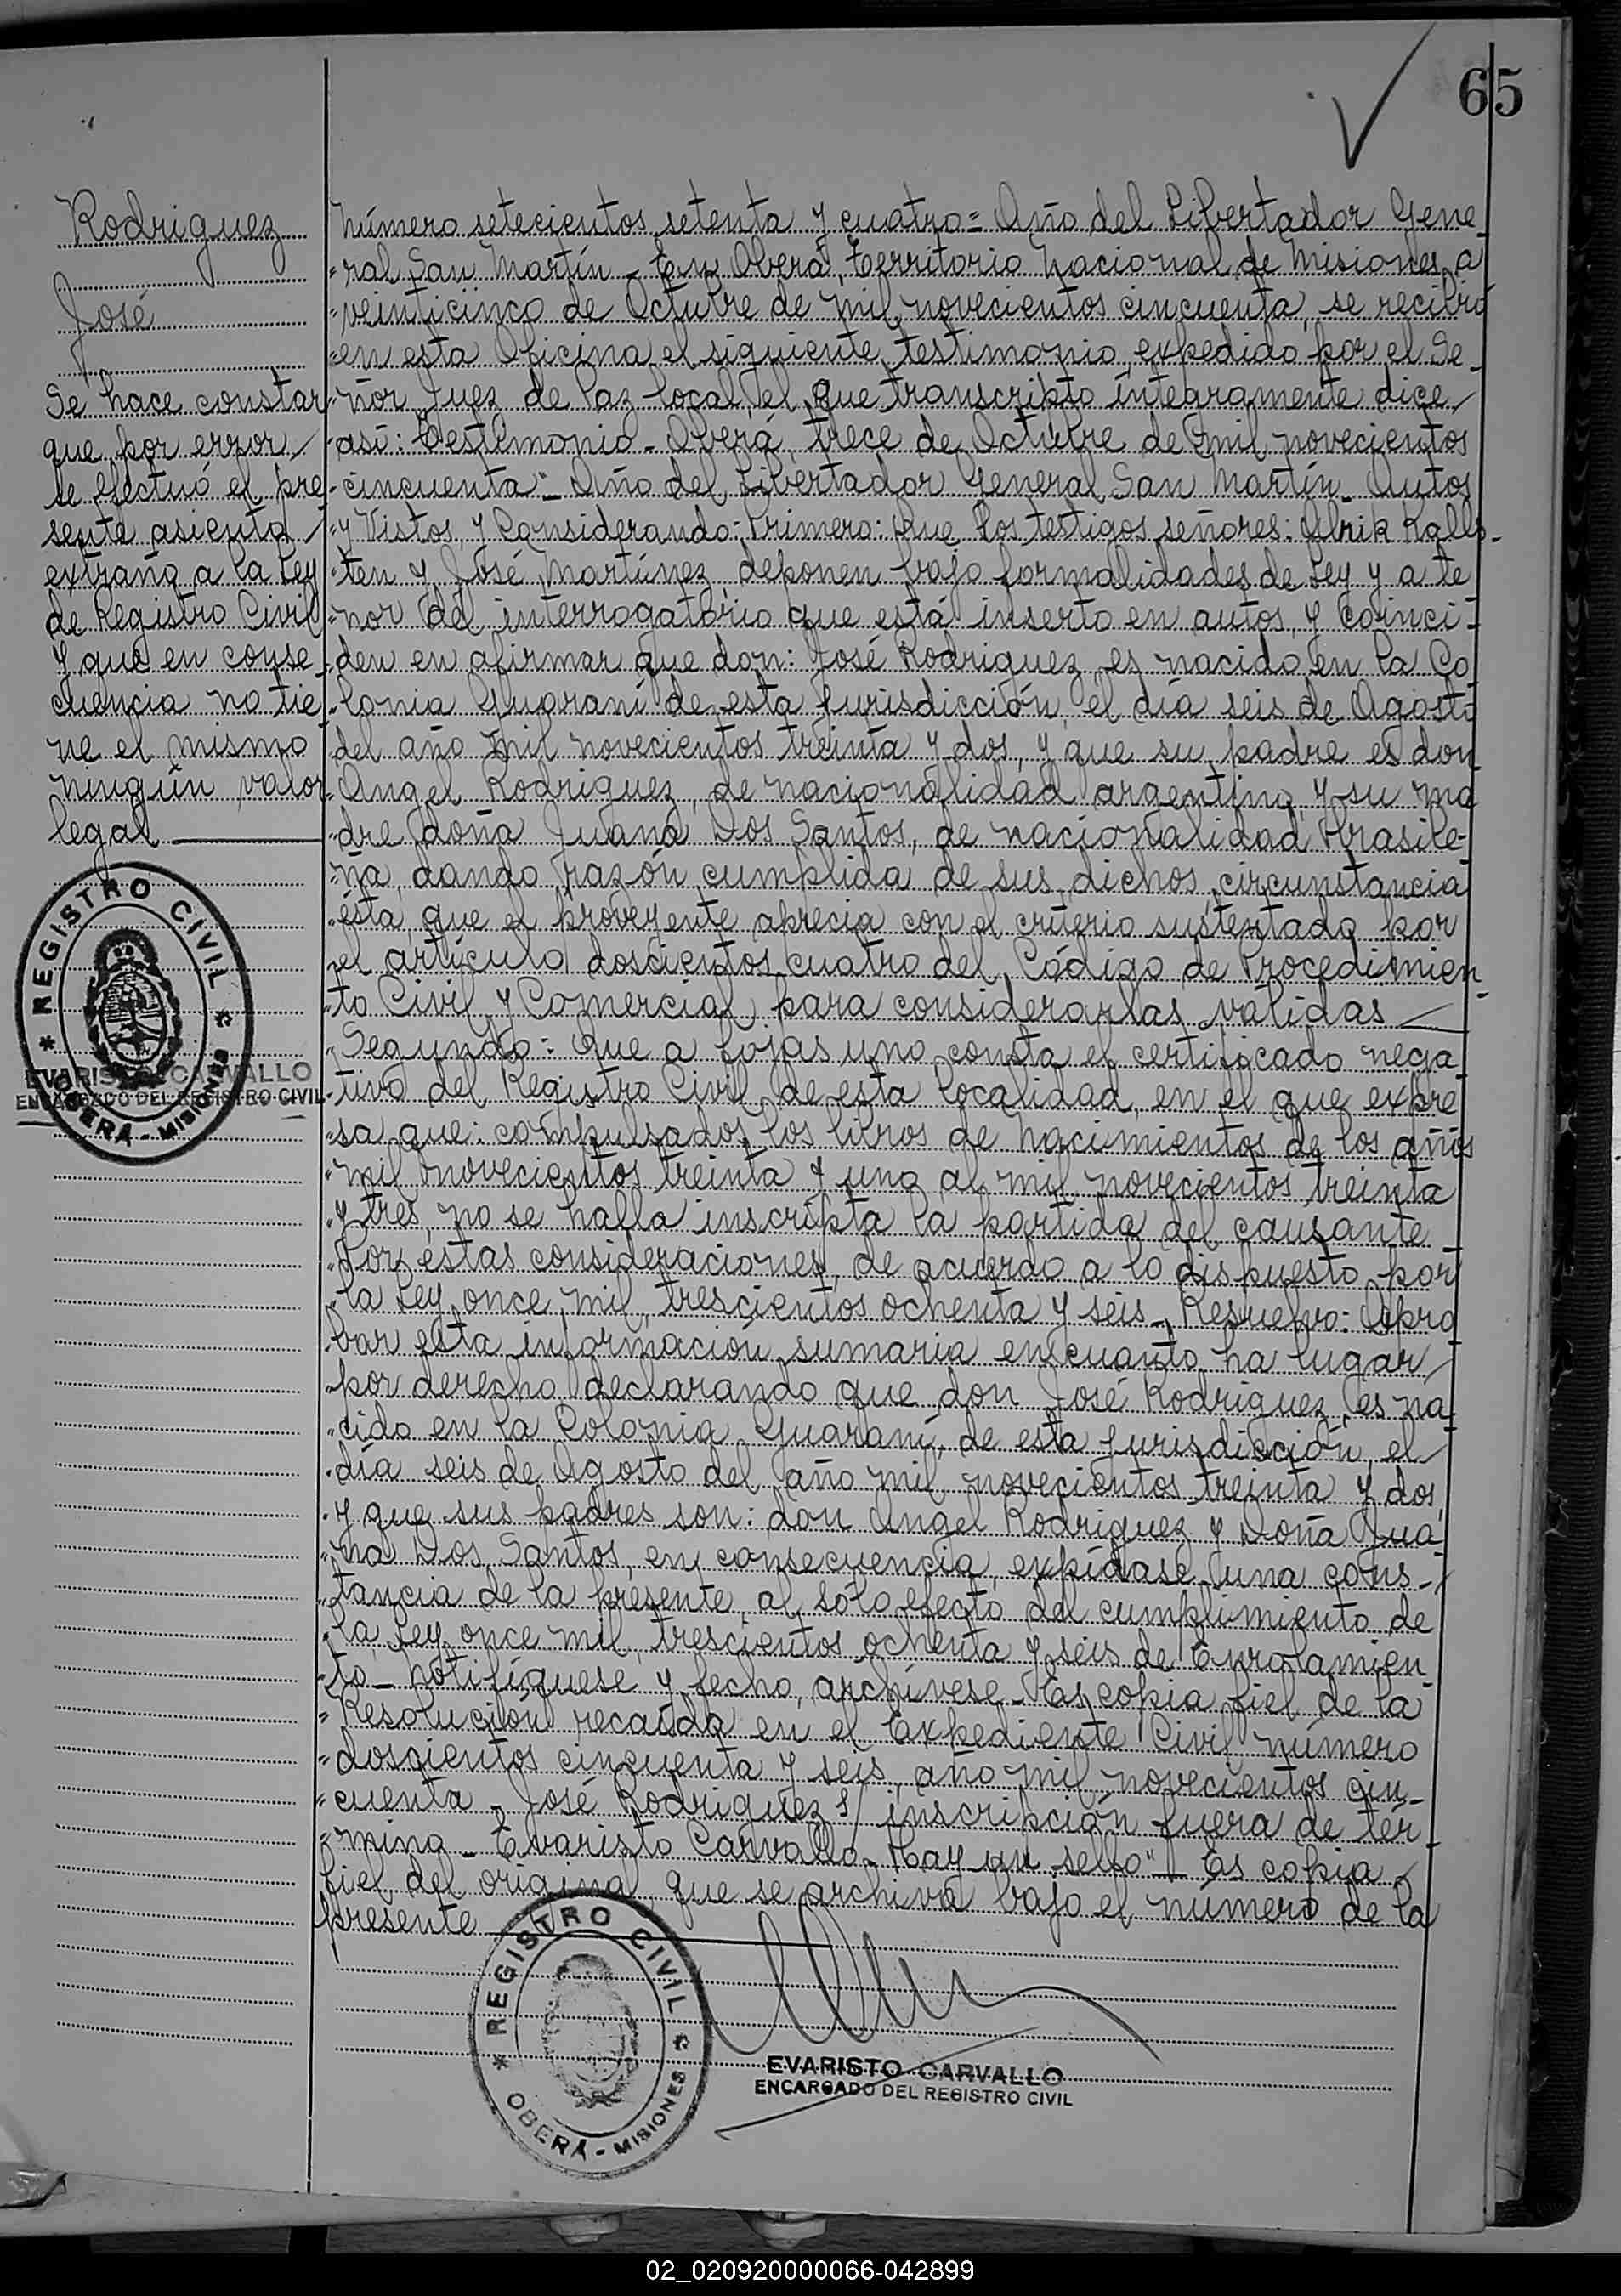 65
Rodriguez
José
Se hace constar
que por error
se efectuó el pre
sente asiento
extraño a la Ley
de Registro Civil
y que en conse
cuencia no tie
ne el mismo
ningún valor
legal
REGISTRO CIVIL
OBERÁ - MISIONES
EVARISTO CARVALLO
ENCARGADO DEL REGISTRO CIVIL
Número setecientos setenta y cuatro = Año del Libertador Gene
ral San Martín - En Oberá, Territorio Nacional de Misiones, a
veinticinco de Octubre de mil novecientos cincuenta, se recibió
en esta Oficina el siguiente testimonio expedido por el Se
ñor Juez de Paz local, el que transcripto íntegramente dice
así: "Testimonio - Oberá, trece de Octubre de mil novecientos
cincuenta - Año del Libertador General San Martín - Autos
y Vistos, y Considerando: Primero: Que los testigos señores: Ulrik
ten y José Martínez, deponen bajo formalidades de Ley y a te
nor del interrogatorio que está inserto en autos, y coinci-
den en afirmar que don: José Rodriguez, es nacido en la Co
lonia Guaraní de esta jurisdicción, el día seis de Agosto
del año mil novecientos treinta y dos, y que su padre es don
Angel Rodriguez, de nacionalidad argentina, y su ma
dre doña Juana Dos Santos, de nacionalidad Brasile-
ña, dando razón cumplida de sus dichos, circunstancia
ésta, que el proveyente aprecia con el criterio sustentado por
el artículo doscientos cuatro del Código de Procedimien-
to Civil y Comercial, para considerarlas válidas
Segundo: Que a fojas uno consta el certificado nega
tivo del Registro Civil de esta localidad, en el que expre
sa que: compulsados los libros de nacimientos de los años
mil novecientos treinta y uno al mil novecientos treinta
y tres, no se halla inscripta la partida del causante
Por estas consideraciones, de acuerdo a lo dispuesto por
la Ley once mil trescientos ochenta y seis - Resuelvo: Apro
bar esta información sumaria en cuanto ha lugar
por derecho declarando que don José Rodriguez, es na
cido en la Colonia Guaraní, de esta jurisdicción, el
día seis de Agosto del año mil novecientos treinta y dos,
y que sus padres son: don Angel Rodriguez y Doña Jua
na Dos Santos, en consecuencia, expídase una cons-
tancia de la presente, al sólo efecto del cumplimiento de
la Ley once mil trescientos ochenta y seis de Enrolamien
to - Notifíquese y fecho, archívese - Es copia fiel de la
Resolución recaída en el Expediente Civil número
doscientos cincuenta y seis, año mil novecientos cin-
cuenta - José Rodriguez s/ inscripción fuera de tér-
mino - Evaristo Carvallo - Hay un sello" - Es copia
fiel del original, que se archiva bajo el número de la
presente
REGISTRO CIVIL
OBERÁ - MISIONES
EVARISTO CARVALLO
ENCARGADO DEL REGISTRO CIVIL
02_020920000066-042899